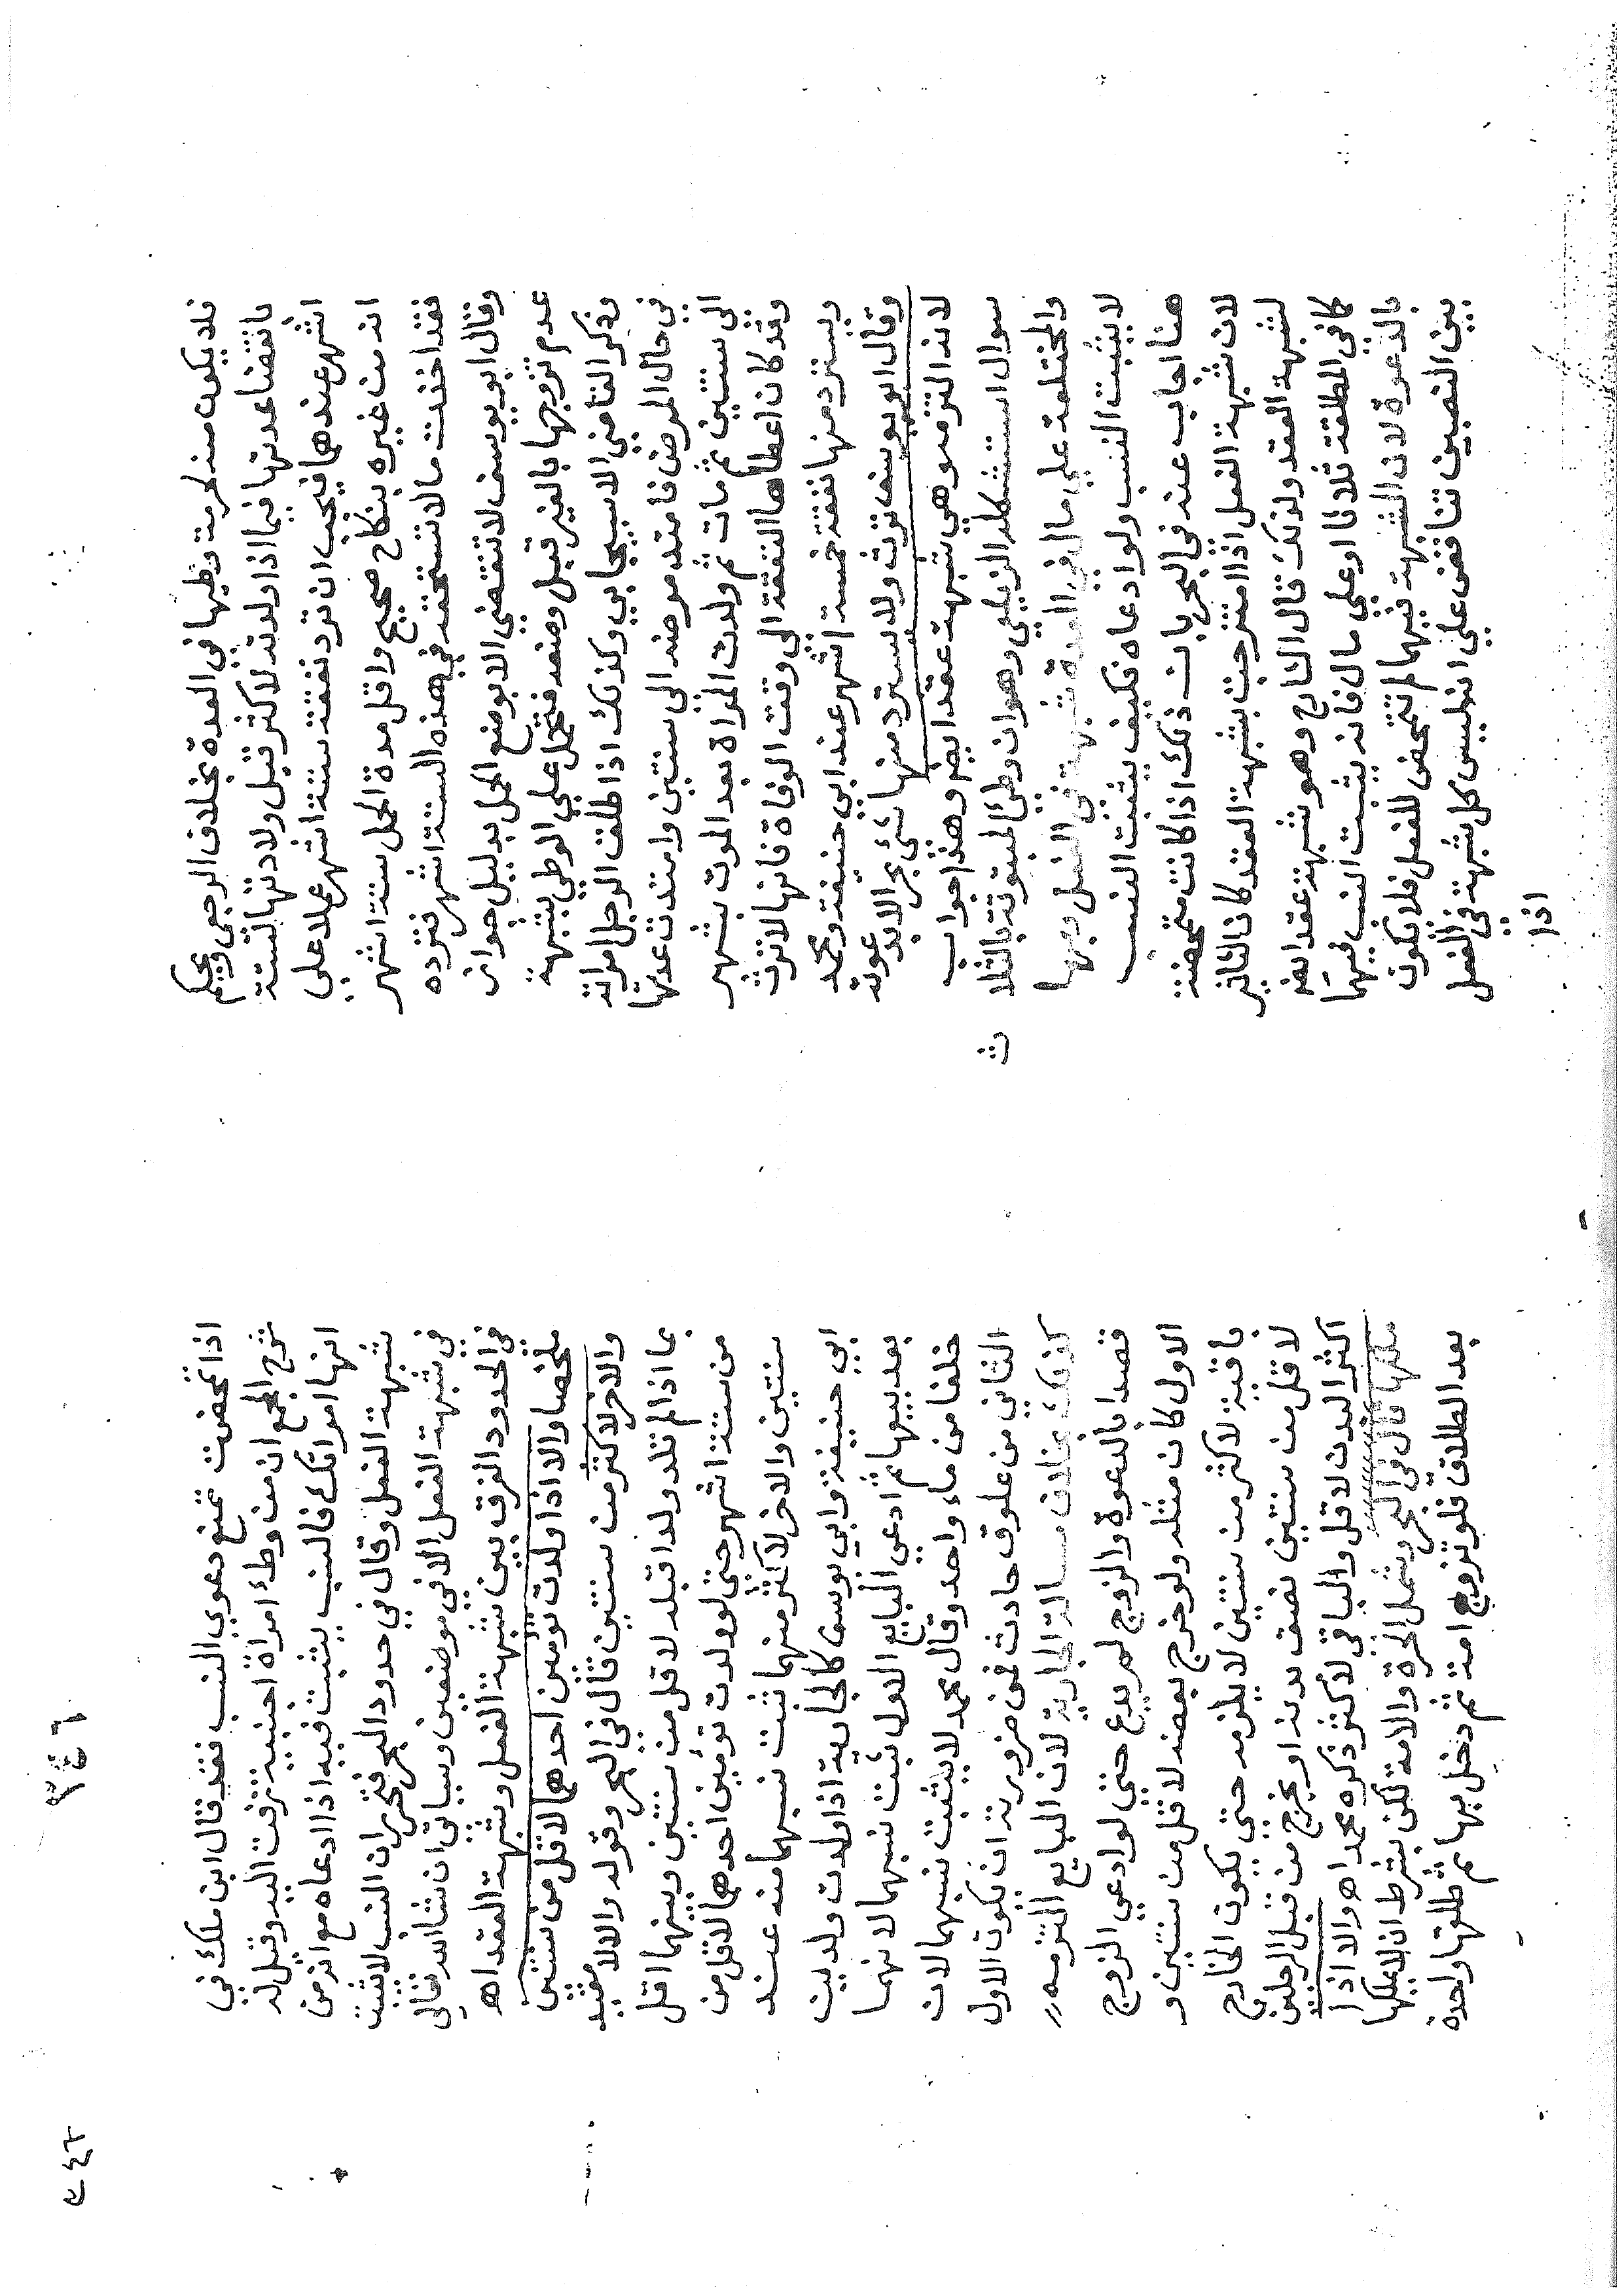 فلا يكون منه لحرمة وطيها في العدة بخلاف الرجعي ويحكم
بانقضا عدتها فيما اذا ولدته لاكثر قبل ولادتها لستة
اشهر عندهما فيجب ان ترد نفقة ستة اشهر حملا على
انه من غيره بنكاح صحيح واقل مدة الحمل ستة اشهر
فقد اخذت مالا تستحقه في هذه الستة اشهر فترده
وقال ابو يوسف لا تنقضي الا بوضع الحمل بدليل جواز
عدم تزوجها بالغير قبل وضعه فتحمل علي الوطي بشبهة
وذكر القاضي الاسبيجابي وكذلك اذا طلق الرجل امراته
في حال المرض فامتد مرضه الى سنتين وامتدت عدتها
الى سنتين ثم مات ثم ولدت المراة بعد الموت بشهر
وقد كان اعطاها النفقة الى وقت الوفاة فانها لا ترث
ويسترد منها نفقة خمسة اشهر عند ابي حنيفة ومحمد
وقال ابو يوسف ترث ولا يسترد منها شي بحر الا بدعوته
لانه التزمه وهي شبهة عقد ايضا وهذا جواب
سوال استشكله الزيلعي وهو ان وطئ المبتوتة بالثلا
ث
والمختلعة علي مال في العدة شبهة في الفعل وبها
لا يثبت النسب ولو ادعاه فكيف يثبت النسب
هنا اجاب عنه في البحر بان ذلك اذا كانت متمحضة
لان شبهة الفعل اذا امتزجت بشبهة العقد كان التاثير
لشبهة العقد ولذلك قال الشارح وهو شبهة عقد ايضا
كما في المطلقة ثلاثا او علي مال فانه يثبت النسب فيهما
بالدعوة لان الشبهة فيهما لم تتمحض للفعل فلا يكون
بين النصين تناقض علي انه ليس كل شبهة في الفعل
اذا
٢٤٦
اذا تمحضت تمنع دعوي النسب فقد قال ابن ملك في
شرح المجمع ان من وطئ امراة اجنبية زفت اليه وقيل له
انها امراتك فالنسب يثبت فيه اذا ادعاه مع انه من
شبهة الفعل وقال في حدود البحر فتحرر ان النسب لا يثبت
في شبهة الفعل الا في موضعين وسياتي ان شا الله تعالى
في الحدود الفرق بين شبهة الفعل وشبهة العقد اهـ
ملخصا والا اذا ولدت تومين احدهما لاقل من سنتين
والاخر لاكثر من سنتين قال في البحر وقوله والا لا مقيد
بما اذا لم تلد ولدا قبله لاقل من سنتين وبينهما اقل
من ستة اشهر حتى لو ولدت تومين احدهما لاقل من
سنتين والاخر لاكثر منهما ثبت نسبهما منه عند
ابي حنيفة وابي يوسف كالجارية اذا ولدت ولدين
بعد بيعها ثم ادعي البايع الاول ثبت نسبهما لانهما
خلقا من ماء واحد وقال محمد لا يثبت نسبهما لان
الثاني من علوق حادث فمن ضرورته ان يكون الاول
كذلك بخلاف مسالة الجارية لان البايع التزمه
قصدا بالدعوة والزوج لم يدع حتى لو ادعي الزوج
الاول كان مثله ولو خرج بعضه لاقل من سنتين و
باقيه لاكثر من سنتين لا يلزمه حتى يكون الخارج
لاقل من سنتين نصف بدنه او يخرج من قبل الرجلين
اكثر البدن لاقل والباقي لاكثر ذكره محمد اهـ والا اذا
ملكها قال في البحر ويشمل الحرة والامة لكن بشرط ان لا يملكها
بعد الطلاق فلو تزوج امة ثم دخل بها ثم طلقها واحدة
٢٤٢